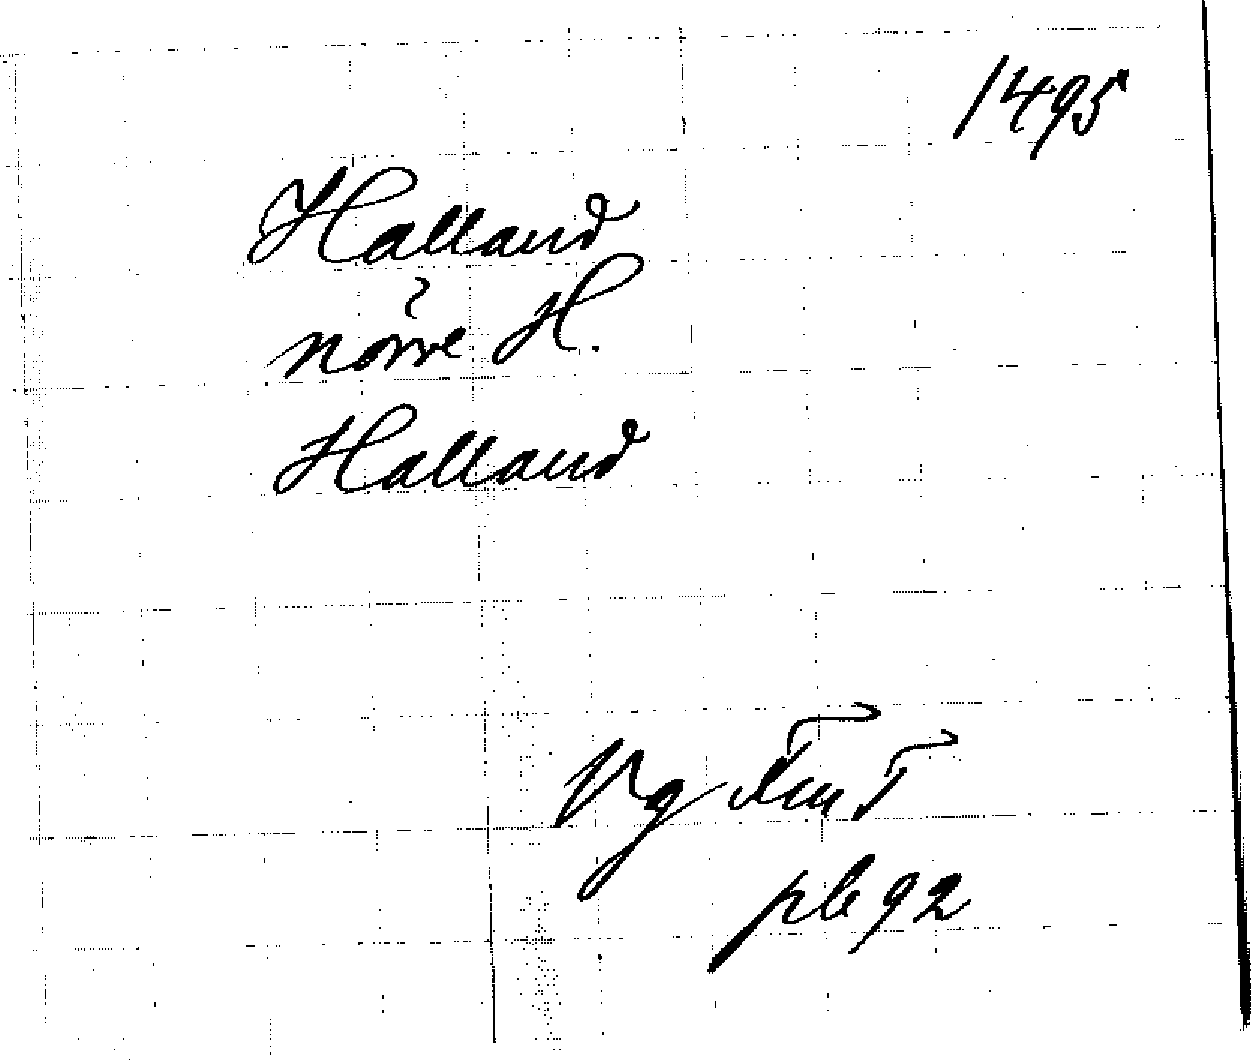 1495
Halland
nörre H.
Halland
Vg
plb 92